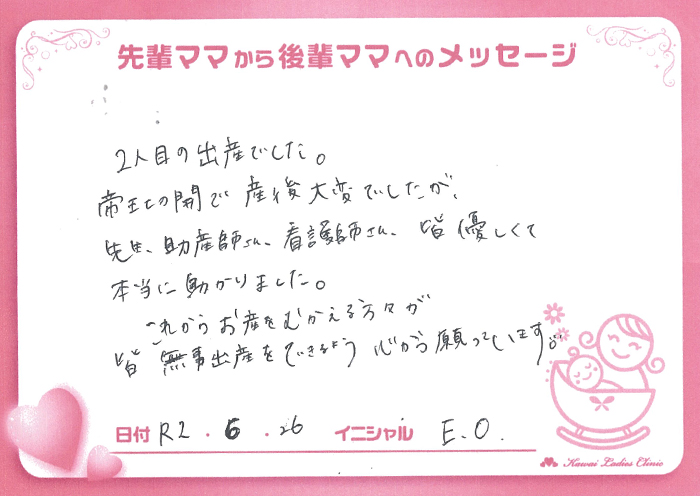 先輩ママから後輩ママへのメッセージ
2人目の出産でした。
帝王切開で産後大変でしたが、
先生、助産師さん、看護師さん、皆優しくて
本当に助かりました。
これからお産をむかえる方々が
皆無事出産をできるよう心から願っています。
日付 R2 . 6 . 26 イニシャル E.O.
Kawai Ladies Clinic